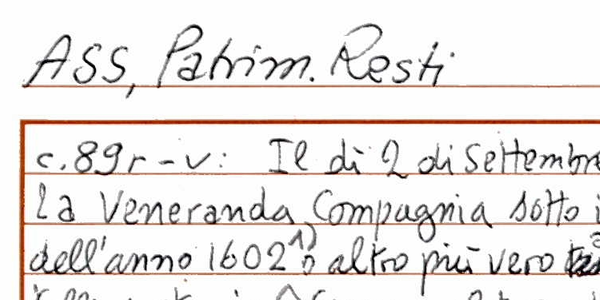 ASS, Patrim. Resti
c. 89r-v: Il dì 2 di Settembre
La Veneranda Compagnia sotto i
dell'anno 1602 1) o altro più vero